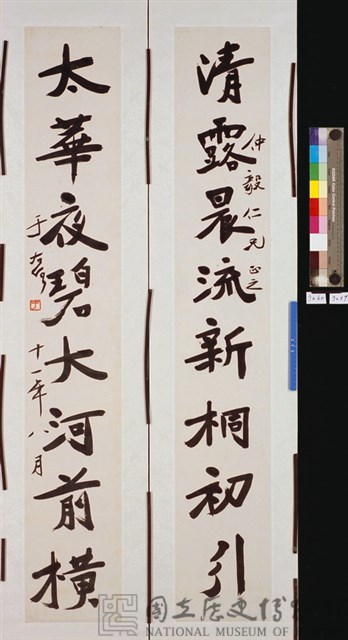 清露晨流新桐初引
仲毅仁兄正之
太華夜碧大河前橫
于右任
十一年八月
國立歷史博
NATIONAL MUSEUM OF